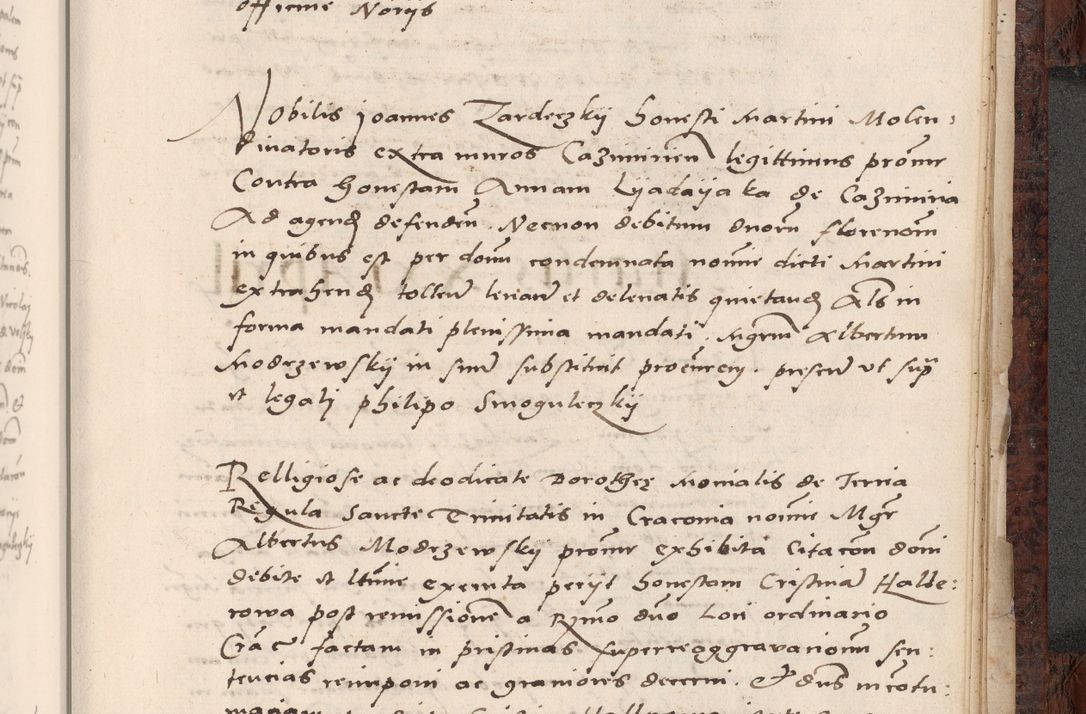 officine Noriis
Nobilis Joannes Zardeczkij honesti Martini Molen-
dinatoris extra muros Cazimirien legittimus procur
Contra honestam Annam Lijadaijaka de Cazimiria
Ad agend defendem. Necnon debitum duorum florenorum
in quibus est per domn condemnata nomine dicti Martini
extrahend tollen levand et delevatis quietand Als in
forma mandati plenissima mandati. Mgrum Albertum
Modrzewskij in suum substituit procurem. presen ut supra
et legalj philipo Smoguleczkij
Relligiose ac deodicate Dorothee Monialis de Tertia
Regula Sancte Trinitatis in Craconia nomine Mgr
Albertus Modrzewskij procur exhibita Citacon domi
debite et ltime exenta periit honestam Cristinam Halde:
rowa post remissionem a Rmo dno Loci ordinario
Crac factam in pristinas superreaggravacionum sen:
tencias reimponi ac graniores decerni. Et dnus in contu: